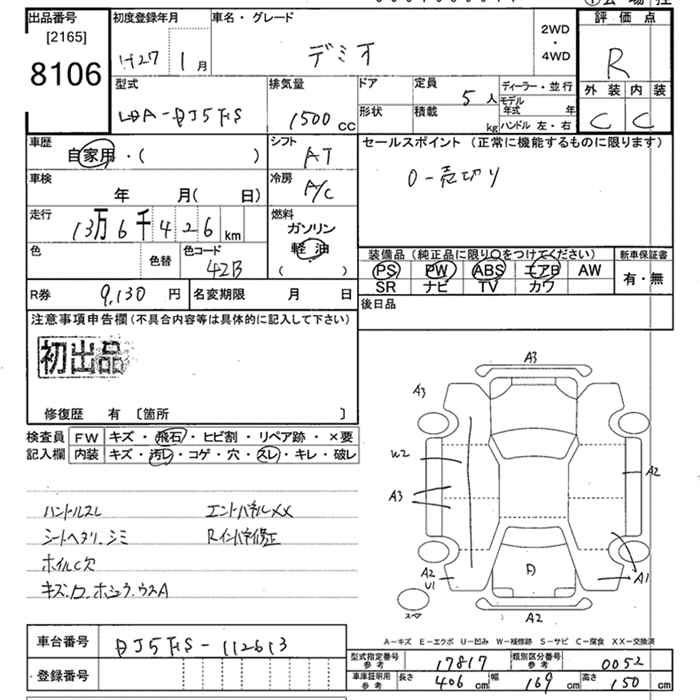 出品番号
[2165]
8106
初度登録年月
H27 1月
車名・グレード
デミオ
2WD
・
4WD
評価点
R
外装 内装
C C
型式
LDA-DJ5FS
排気量
1500 CC
ドア
形状
定員
5人
積載
kg
ディーラー・並行
モデル年式 年
ハンドル 左・右
車歴
自家用・( )
シフト
AT
車検
年 月( 日)
冷房
A/C
走行
13万6千426 km
燃料
ガソリン
軽油
( )
色
色替
色コード
42B
R券 9,130 円
名変期限 月 日
セールスポイント (正常に機能するものに限ります)
0-売切り
装備品 (純正品に限り○をつけてください)
PS PW ABS エアB AW
SR ナビ TV カワ
新車保証書
有・無
後日品
注意事項申告欄(不具合内容等は具体的に記入して下さい)
初出品
修復歴 有 〔箇所 〕
検査員記入欄
FW キズ・飛石・ヒビ割・リペア跡・×要
内装 キズ・汚レ・コゲ・穴・スレ・キレ・破レ
ハンドルスレ エンドパネルXX
シートヘタリ、シミ Rインパネ修正
ホイルC欠
A3
A3
W2
A3
A2
A2
U1
A1
A2
スペア
A-キズ E-エクボ U-凹み W-補修跡 S-サビ C-腐食 XX-交換済
車台番号 DJ5FS-112613
登録番号
型式指定番号参考 17817
類別区分番号参考 0052
車庫証明用参考 長さ 406 cm 幅 169 cm 高さ 150 cm